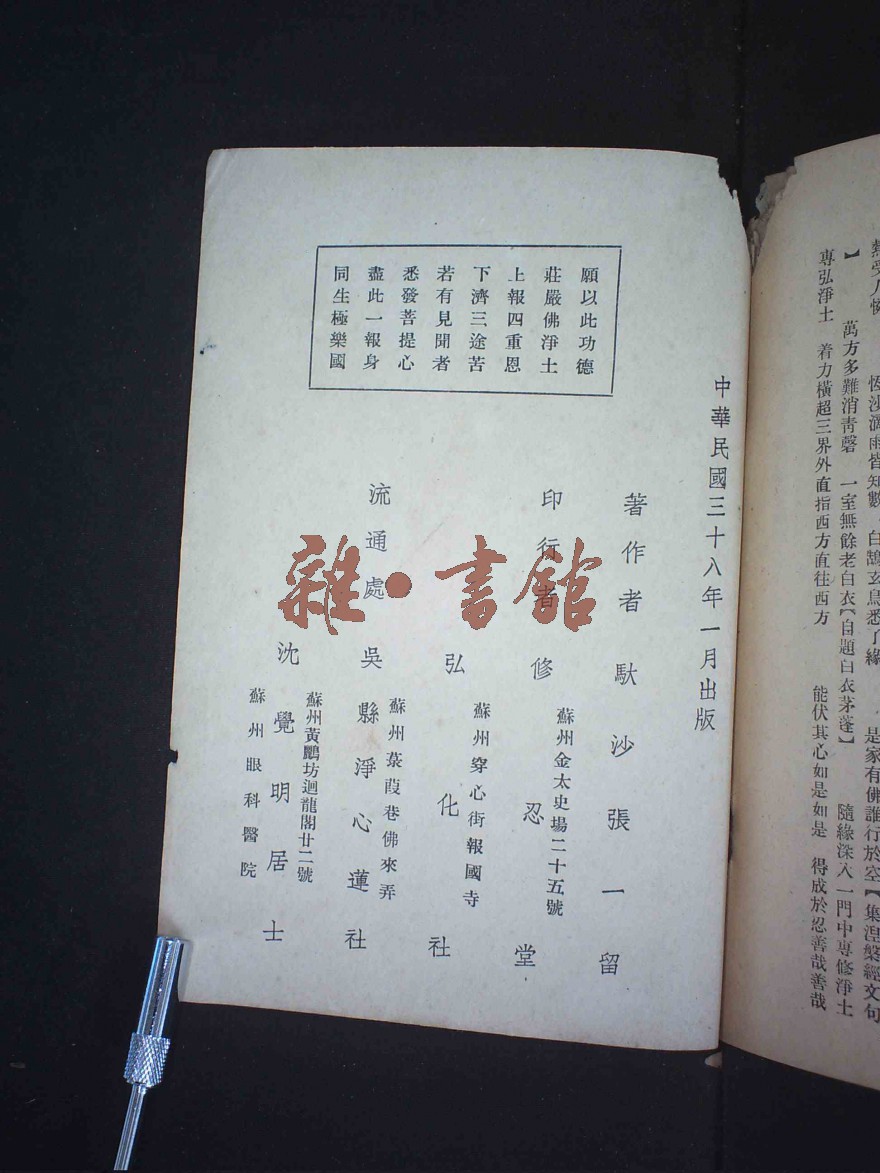 恆沙滴雨皆知數 白鵠玄鳥悉了緣 是家有佛誰行於空【集涅槃經文句
】 萬方多難消青磬 一室無餘老白衣【自題白衣茅蓬】 隨緣深入一門中專修淨土
專弘淨土 着力橫超三界外直指西方直往西方 能伏其心如是如是 得成於忍善哉善哉
中華民國三十八年一月出版
願以此功德
莊嚴佛淨土
上報四重恩
下濟三途苦
若有見聞者
悉發菩提心
盡此一報身
同生極樂國
著作者 馱沙張一留
印行者 修忍堂
蘇州金太史場二十五號
弘化社
蘇州穿心街報國寺
流通處 吳縣淨心蓮社
蘇州菉葭巷佛來弄
沈覺明居士
蘇州黃鸝坊迴龍閣廿二號
蘇州眼科醫院
雜·書館